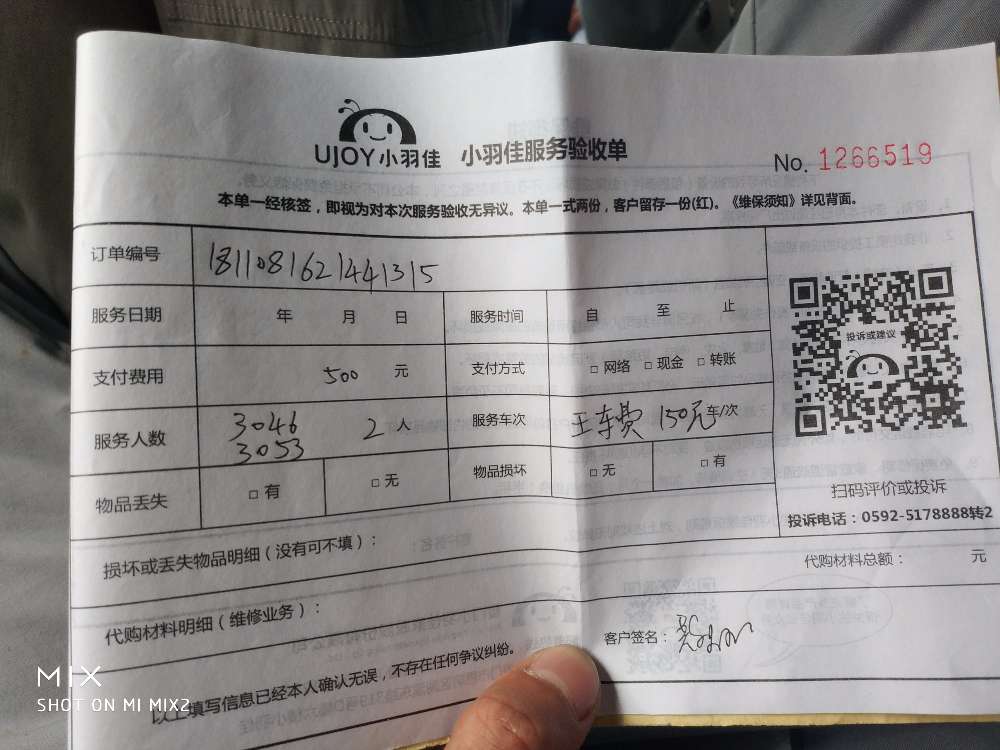 UJOY小羽佳 小羽佳服务验收单
No. 1266519
本单一经核签，即视为对本次服务验收无异议。本单一式两份，客户留存一份(红)。《维保须知》详见背面。
订单编号 181108162144131​5
服务日期 年 月 日 服务时间 自 至 止
支付费用 500 元 支付方式 □ 网络 □ 现金 □ 转账
服务人数 3046 3053 2 人 服务车次 车费 150元 车/次
物品丢失 □ 有 □ 无 物品损坏 □ 无 □ 有
投诉或建议
扫码评价或投诉
投诉电话：0592-5178888转2
损坏或丢失物品明细（没有可不填）：
代购材料明细（维修业务）： 代购材料总额： 元
以上填写信息已经本人确认无误，不存在任何争议纠纷。 客户签名：
MIX
SHOT ON MI MIX2